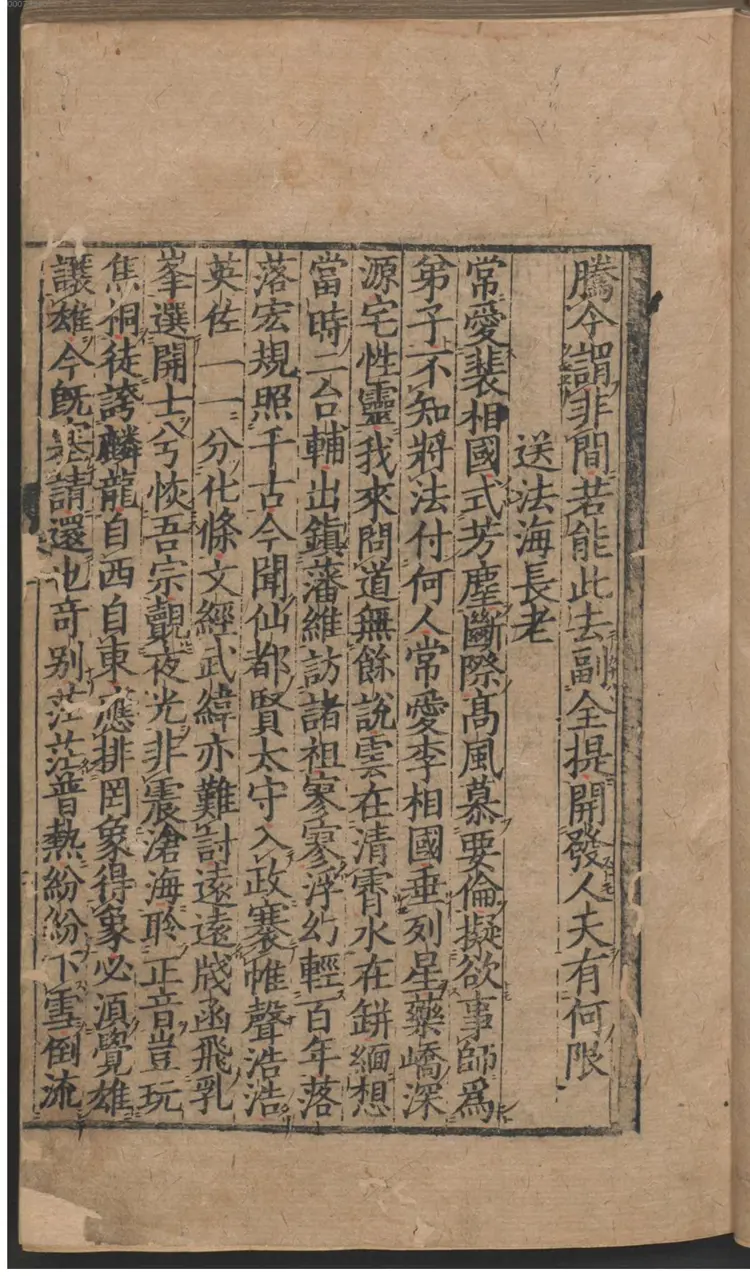 騰今謂非間若能此去副全提開發人夫有何限
送法海長老
常愛裴相國式芳塵斷際髙風慕要倫擬欲事師爲
弟子不知將法付何人常愛李相國垂列星藥嶠深
源宅性靈我來問道無餘說雲在清霄水在缾緬想
當時二台輔出鎮藩維訪諸祖寥寥浮幻輕百年落
落宏規照千古今聞仙都賢太守入政褰帷聲浩浩
英佐一一分化條文經武緯亦難討遠遠牋函飛乳
峯選開士兮恢吾宗覿夜光非震滄海聆正音豈玩
焦桐徒誇麟龍自西自東應排罔象得象必須覺雄
讓雄今旣塞請還也奇别茫茫普熱紛紛下雪倒流